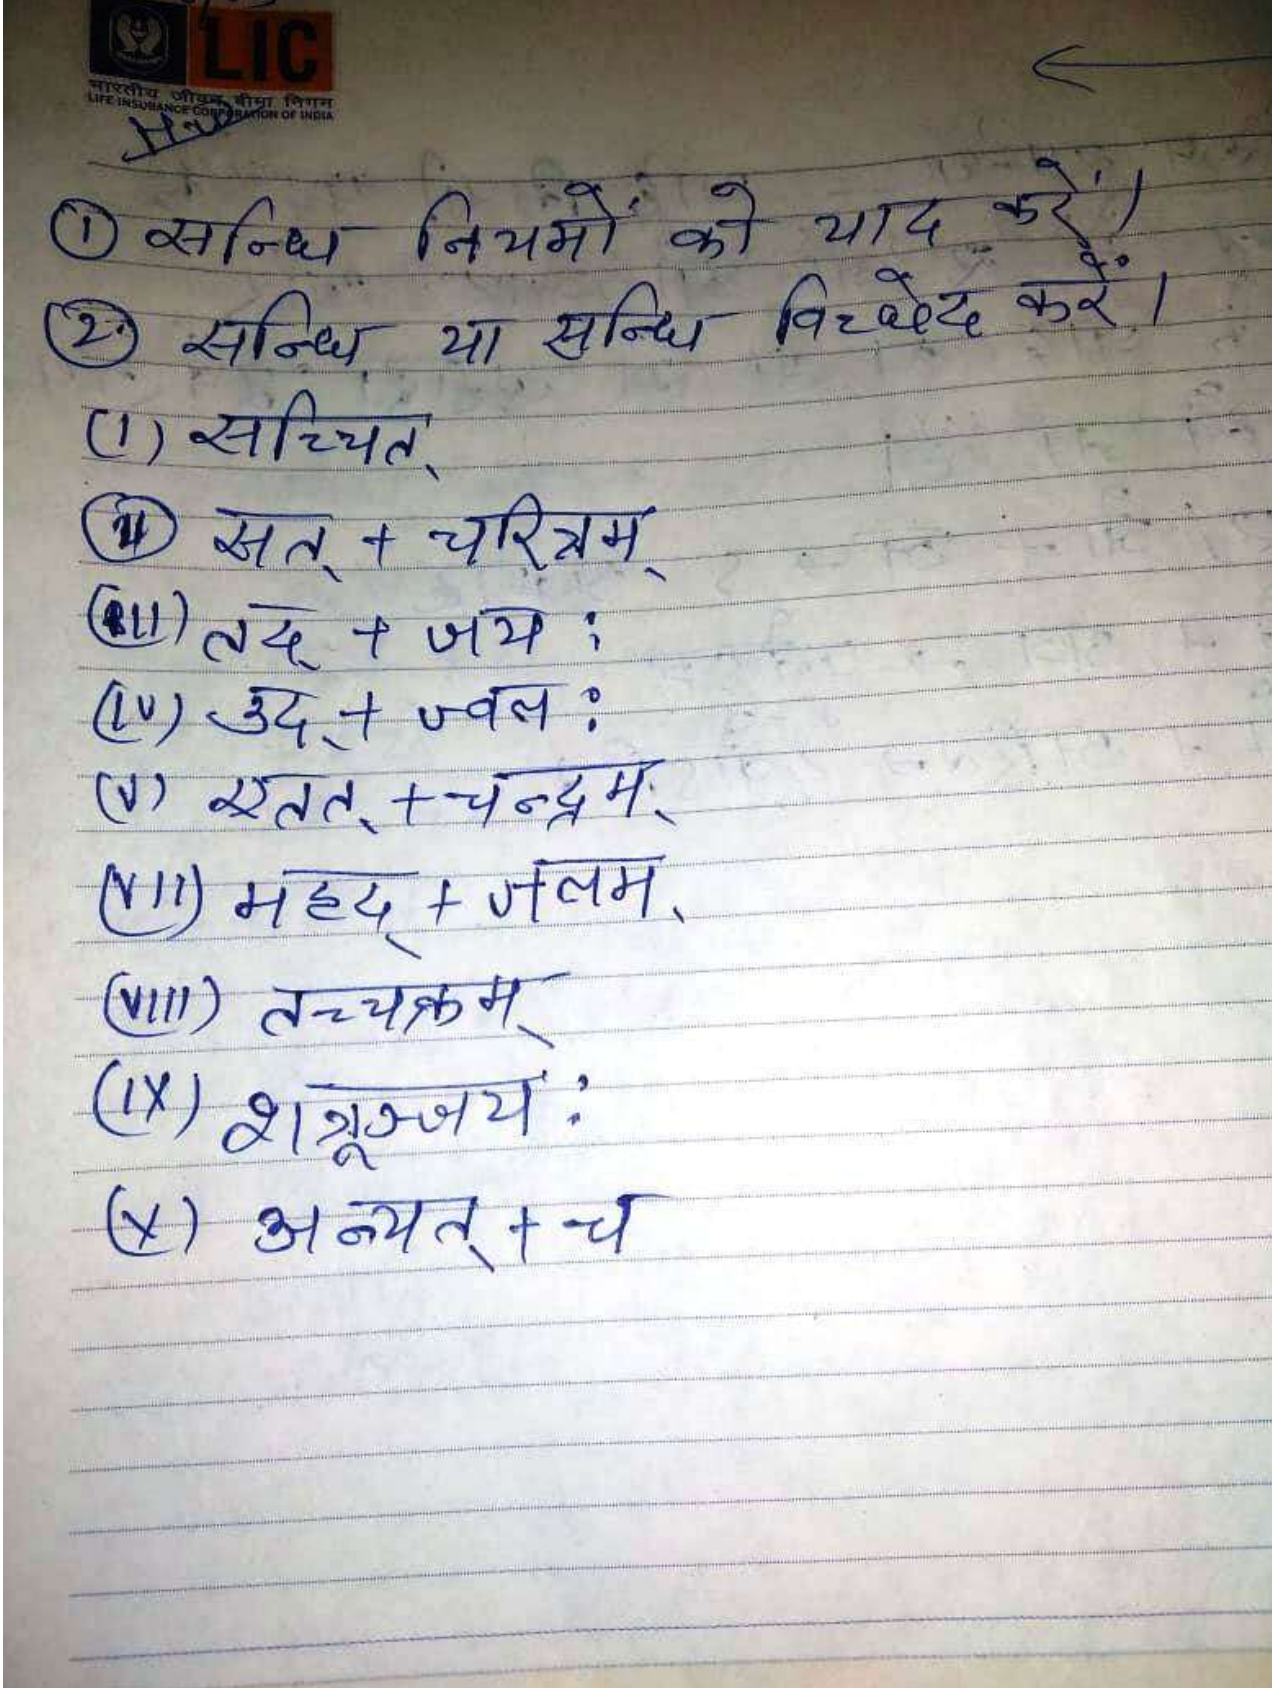 LIC
भारतीय जीवन बीमा निगम
LIFE INSURANCE CORPORATION OF INDIA
H.W
① सन्धि नियमों को याद करें।
② सन्धि या सन्धि विच्छेद करें।
(I) सच्चित्
(II) सत् + चरित्रम्
(III) तद् + जय:
(IV) उद् + ज्वल:
(V) एतत् + चन्द्रम्
(VII) महद् + जलम्
(VIII) तच्चक्रम्
(IX) शत्रूञ्जय:
(X) अन्यत् + च